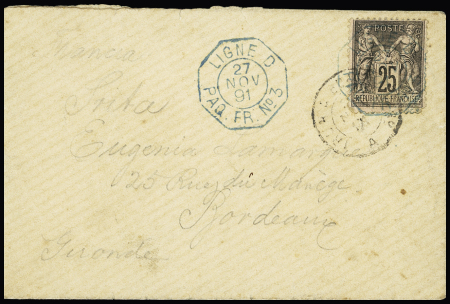 LIGNE D
27
NOV
91
PAQ. FR. No 3
POSTE
25
REPUBLIQUE FRANÇAISE
a
Eugenia
Rue du Manège
Bordeaux
Gironde